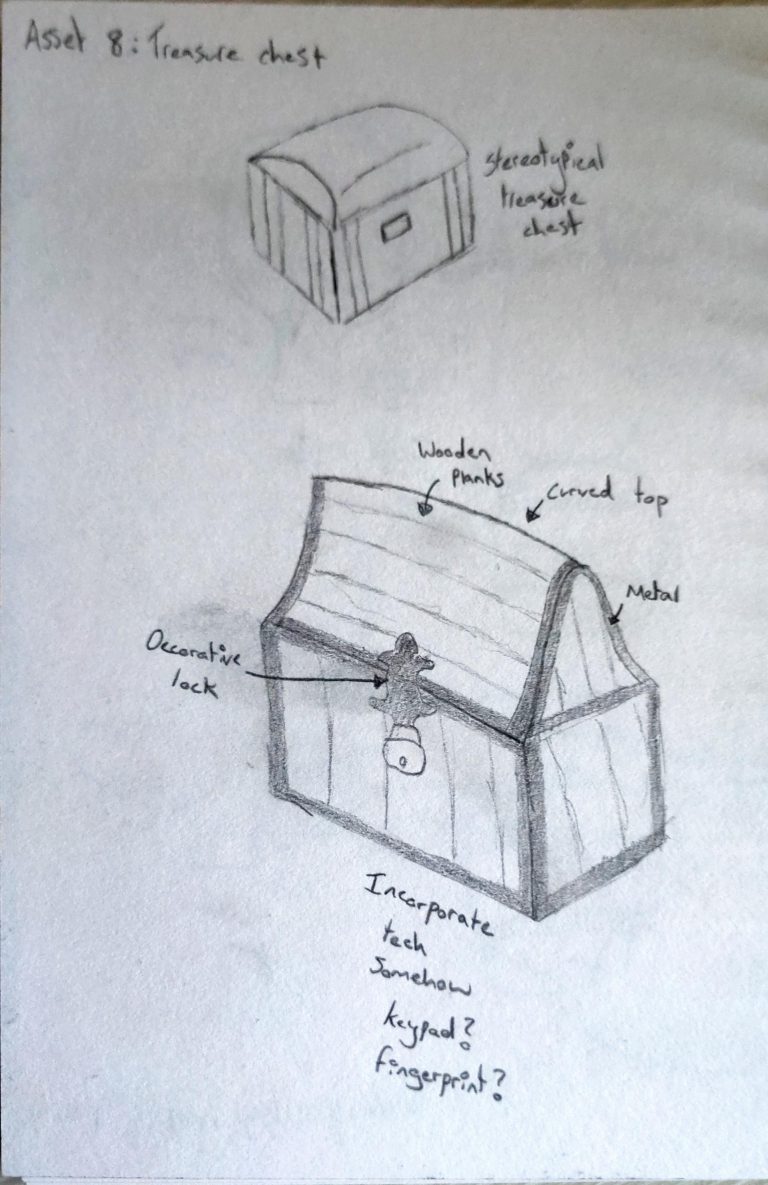 Asset 8: Treasure chest
stereotypical
treasure
chest
Wooden
Planks
Curved top
Metal
Decorative
lock
Incorporate
tech
Somehow
keypad?
fingerprint?